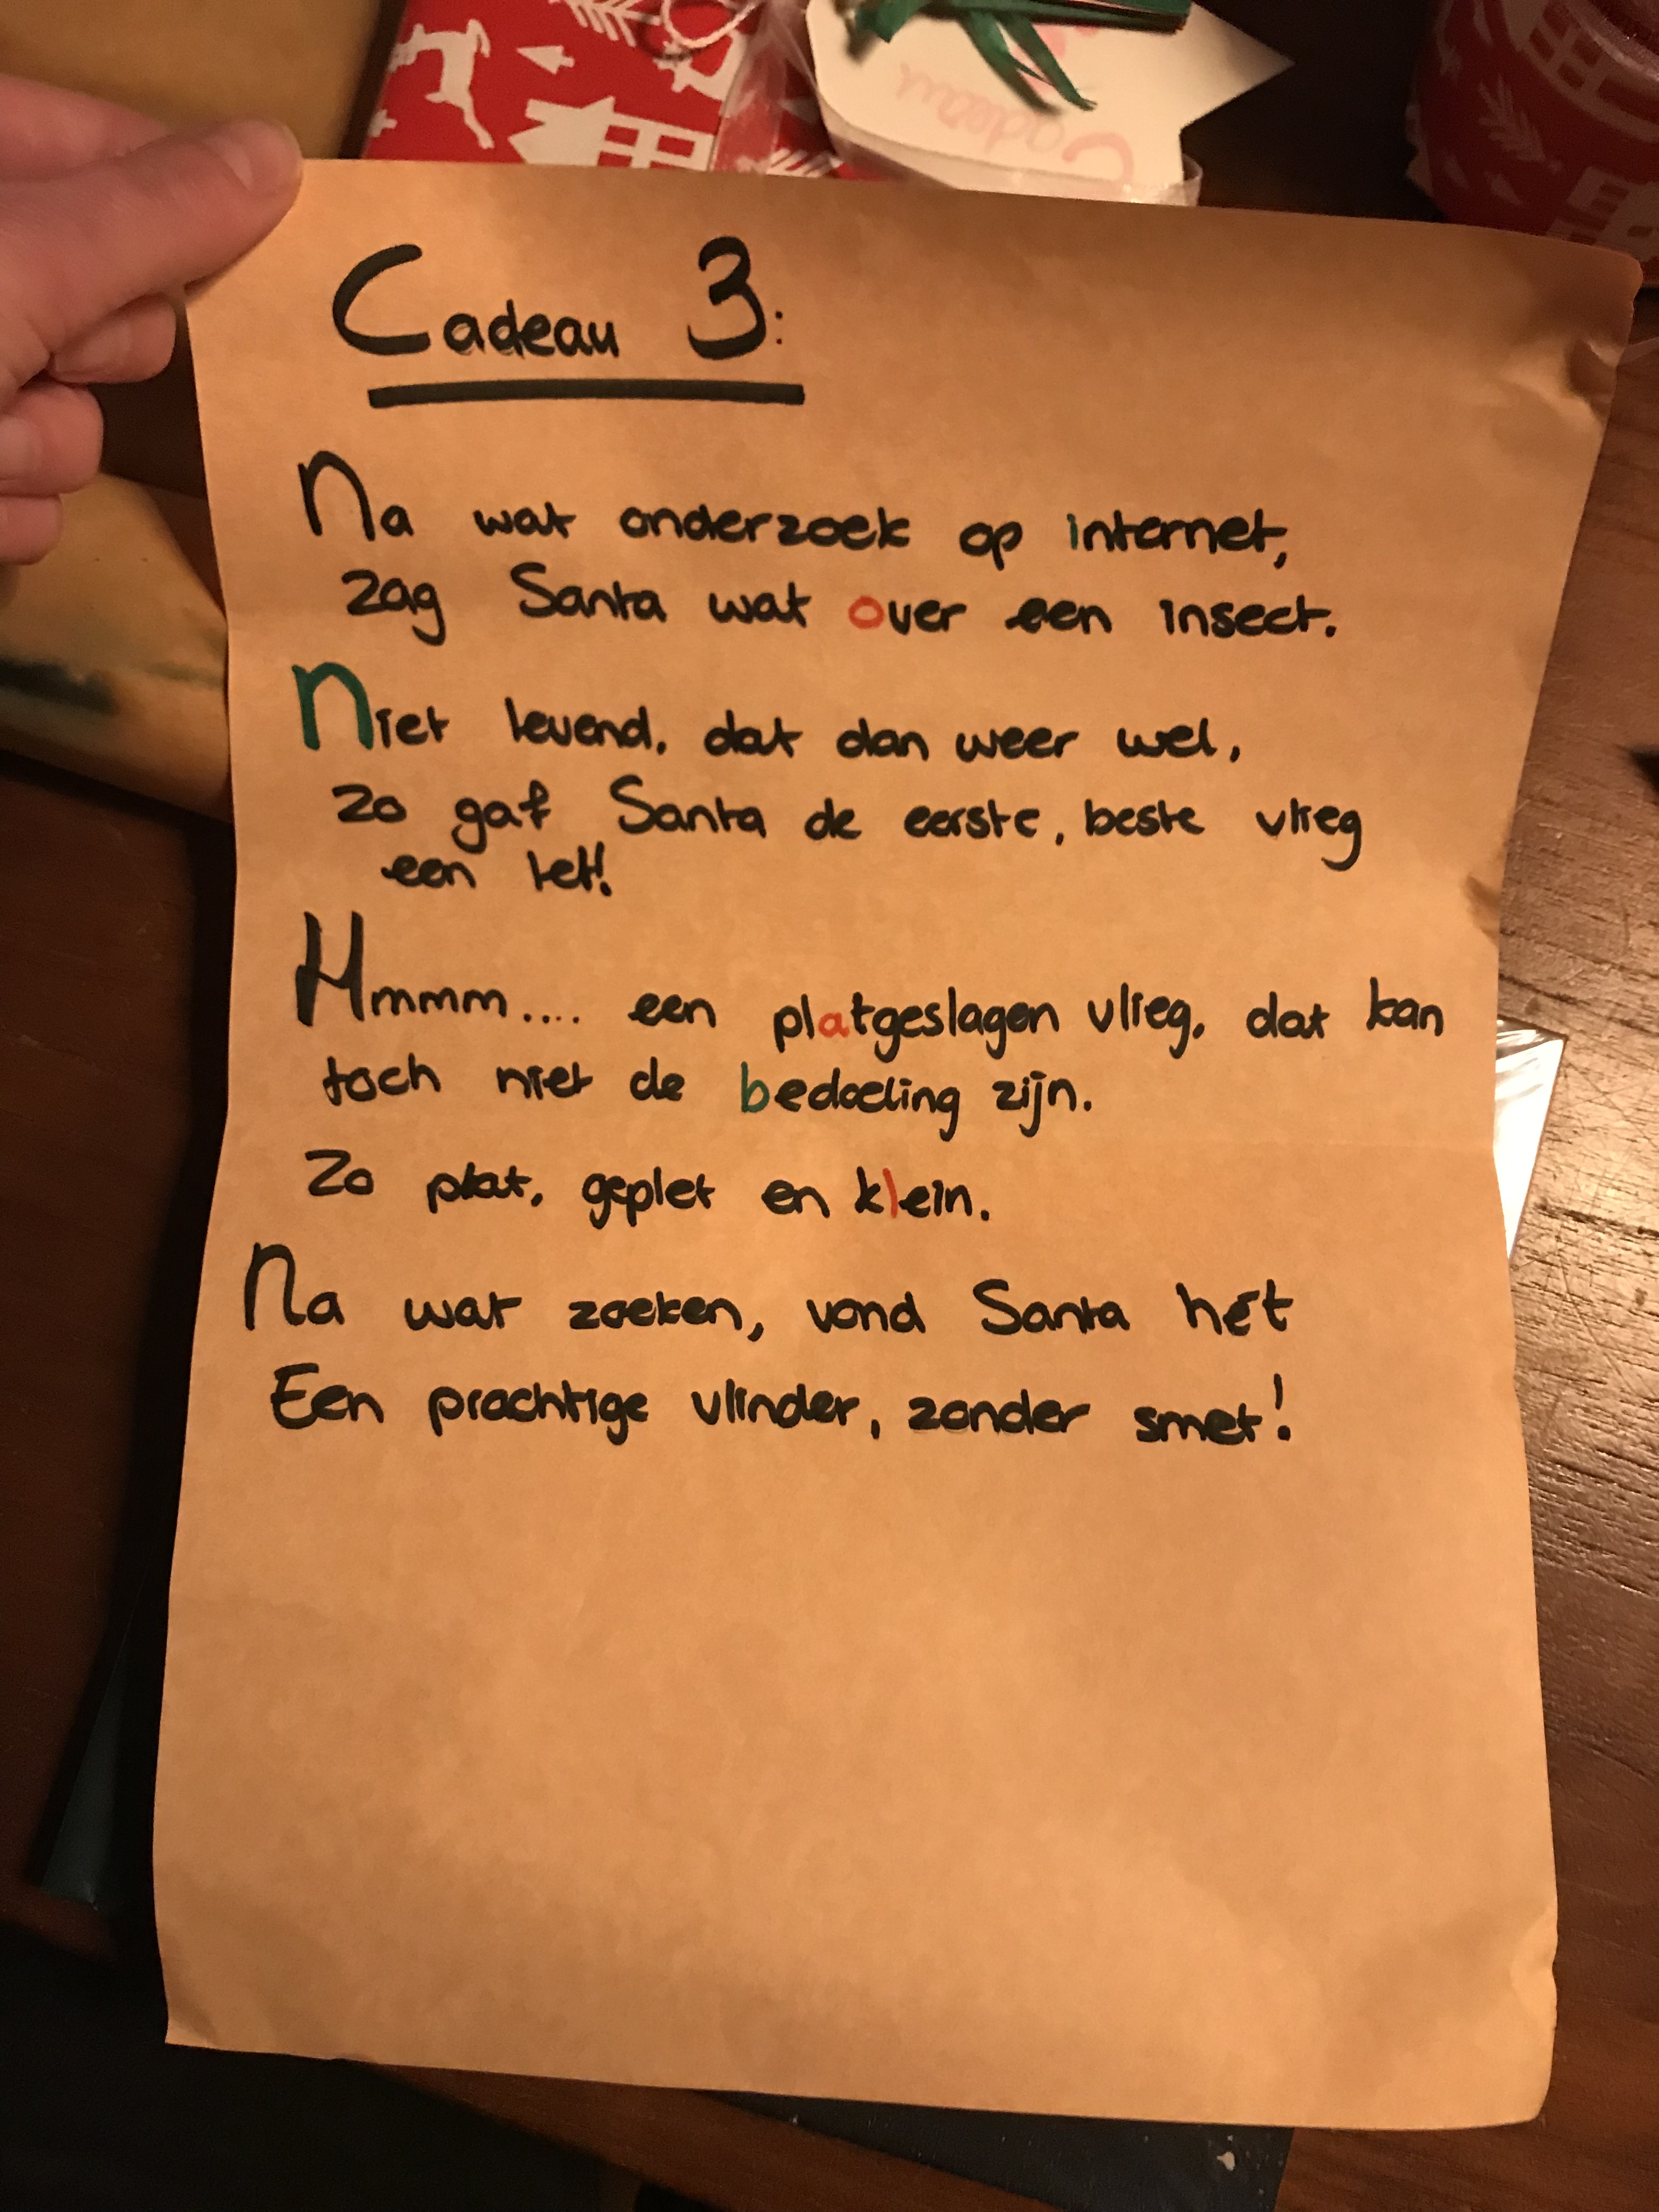 Cadeau
Cadeau 3:
Na wat onderzoek op internet,
zag Santa wat over een insect.
Niet levend, dat dan weer wel,
zo gaf Santa de eerste, beste vlieg
een lel!
Hmmm.... een platgeslagen vlieg, dat kan
toch niet de bedoeling zijn.
Zo plat, geplet en klein.
Na wat zoeken, vond Santa hét
Een prachtige vlinder, zonder smet!